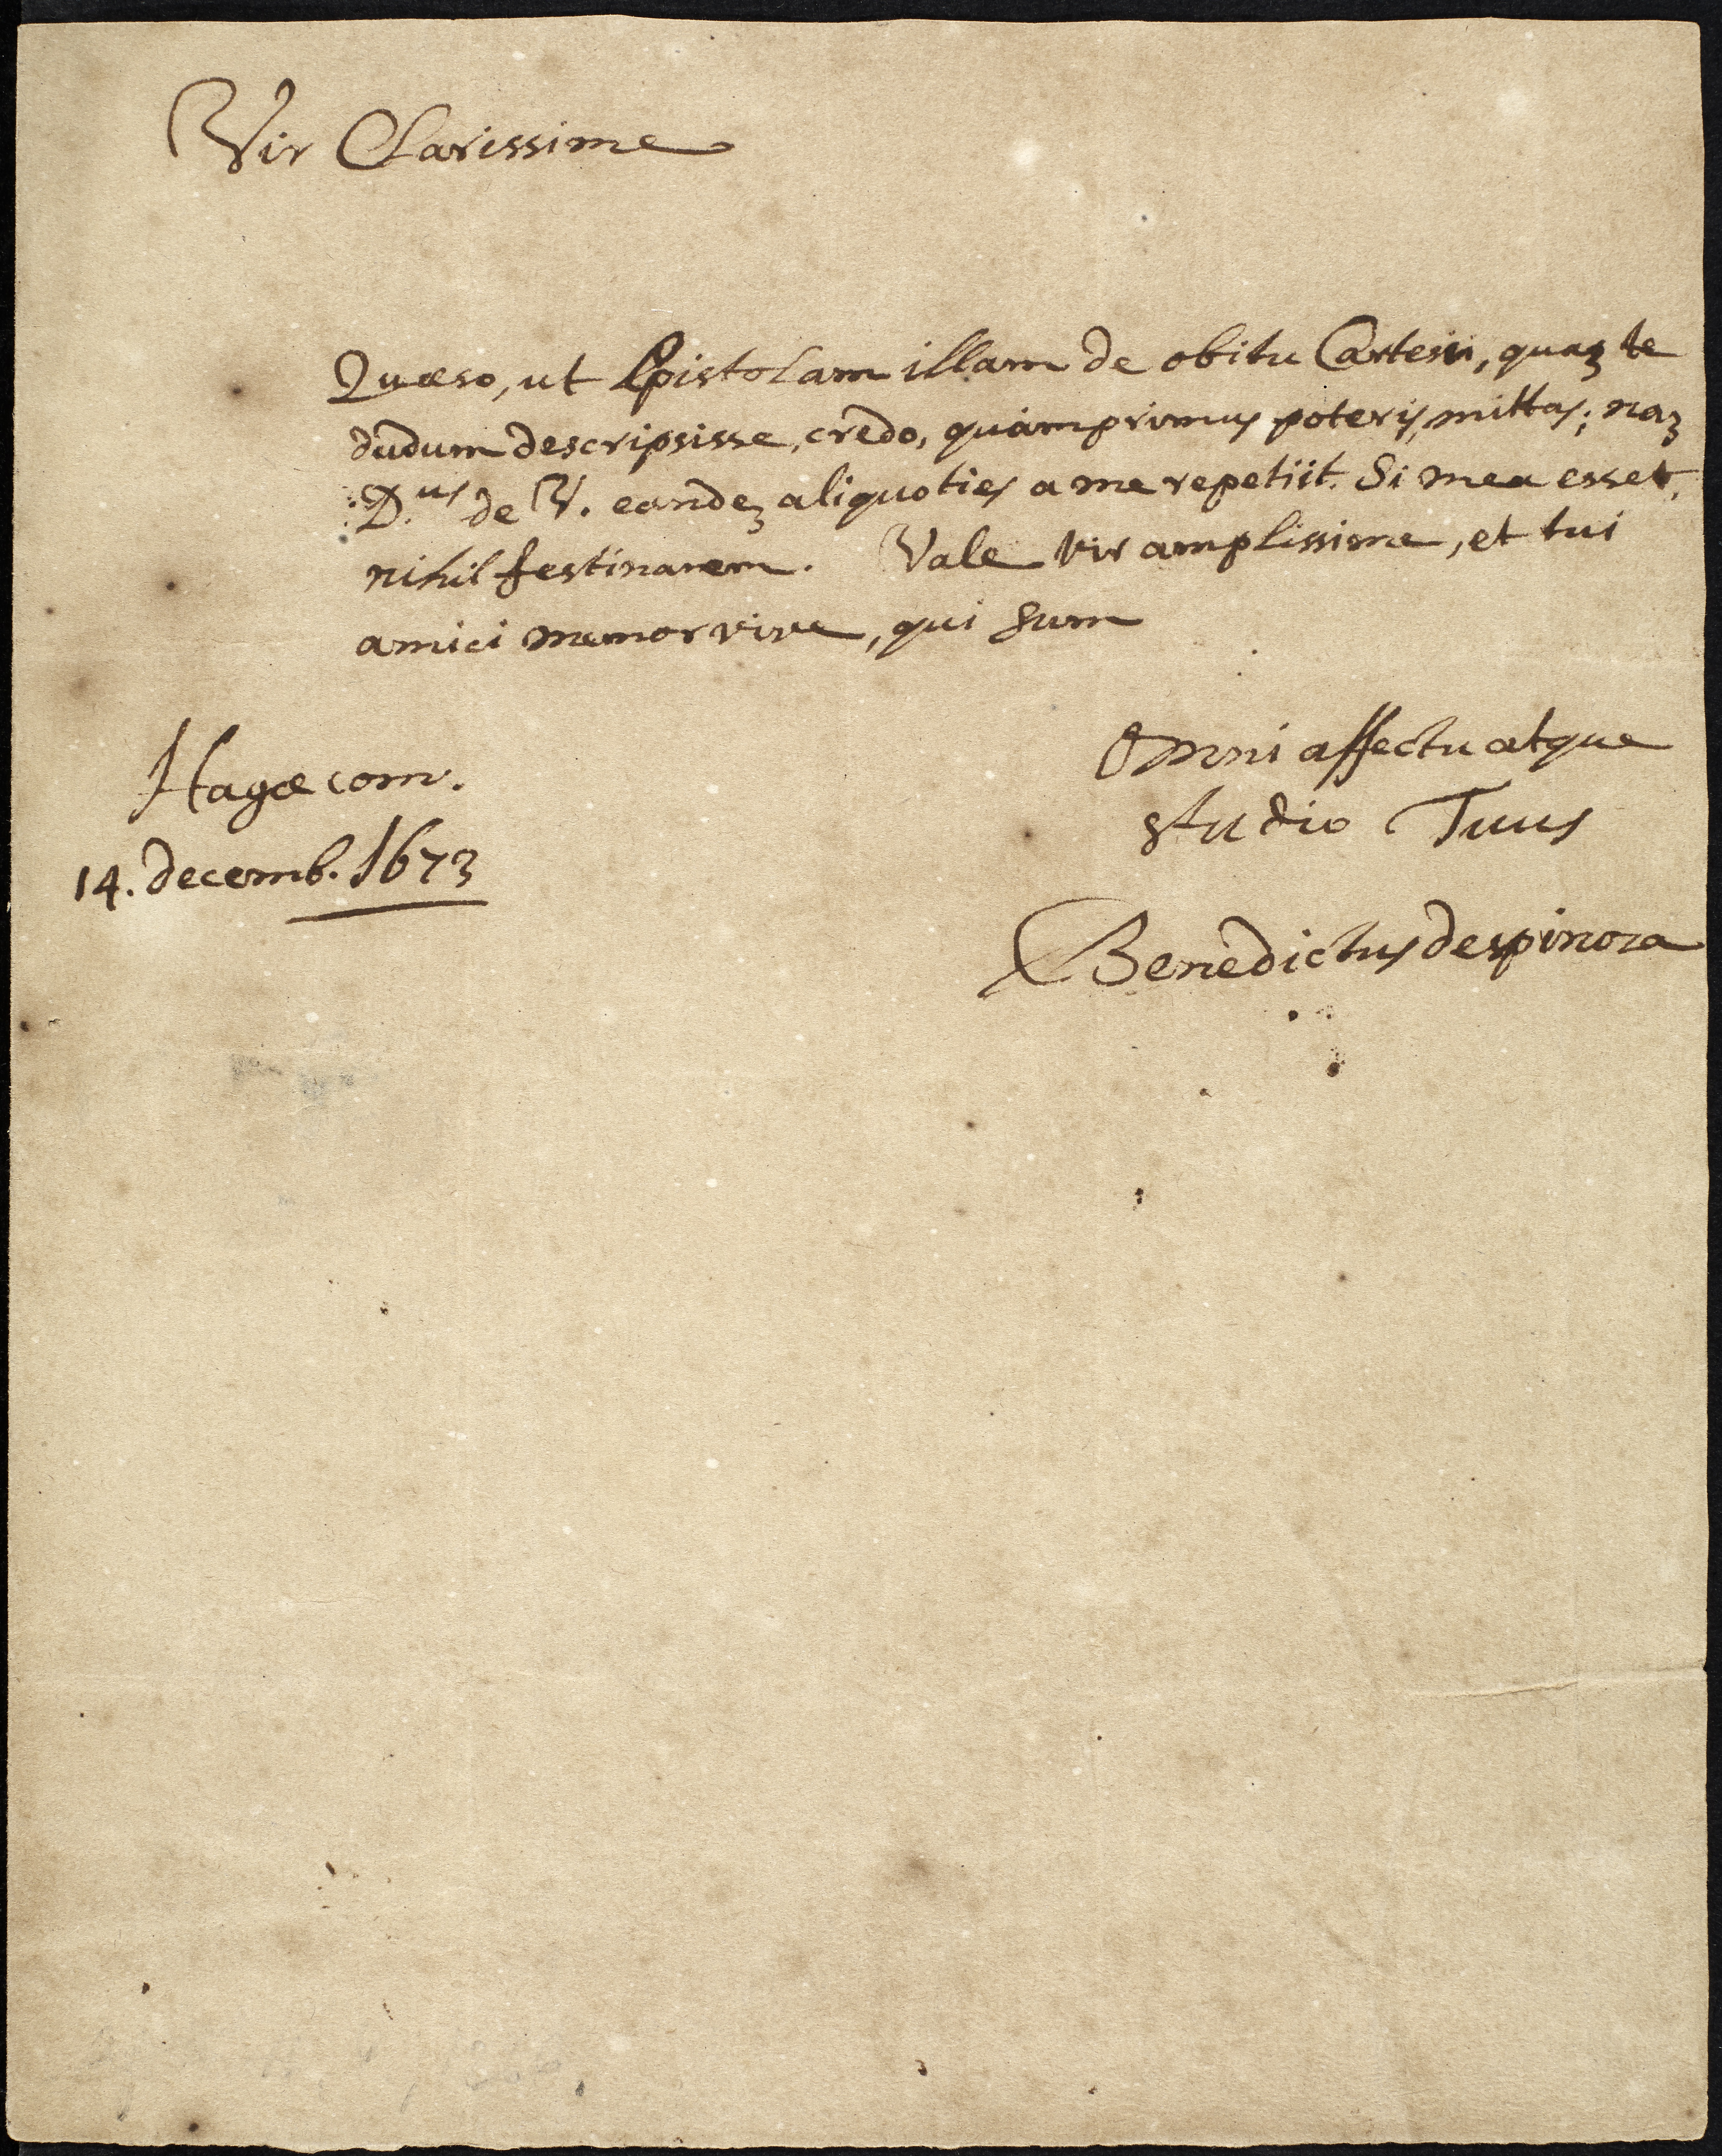 Vir Clarissime
Quæso, ut Epistolam illam de obitu Cartesii, quaꝫ te
dudum descripsisse, credo, quàmprimus poteris, mittas; naꝫ
D.us de V. eandeꝫ aliquoties a me repetiit. Si mea esset,
nihil festinarem. Vale vir amplissime, et tui
amici memor vive, qui sum
Omni affectu atque
studio Tuus
Benedictus despinoza
Hagæ com.
14. decemb. 1673